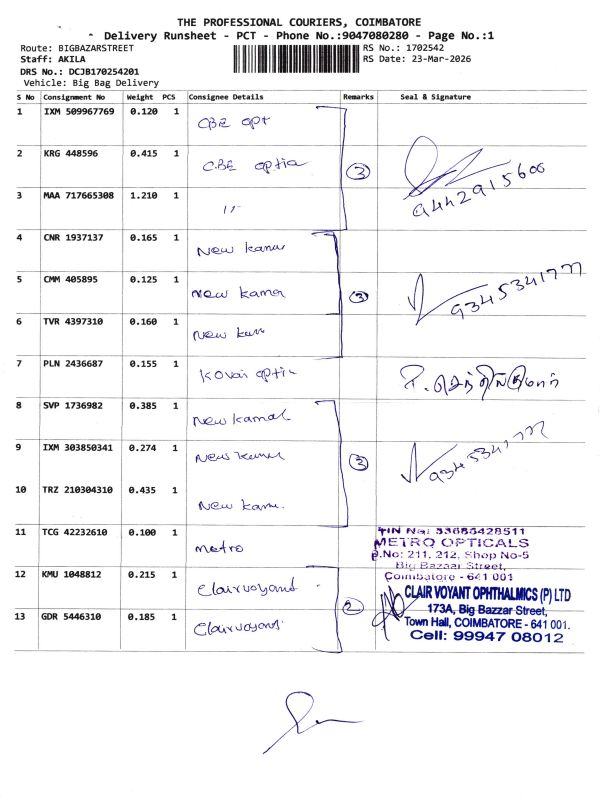 THE PROFESSIONAL COURIERS, COIMBATORE
Delivery Runsheet - PCT - Phone No.:9047080280 - Page No.:1
Route: BIGBAZARSTREET
Staff: AKILA
DRS No.: DCJB170254201
Vehicle: Big Bag Delivery
RS No.: 1702542
RS Date: 23-Mar-2026
S No Consignment No Weight PCS Consignee Details Remarks Seal & Signature
1 IXM 509967769 0.120 1 CBE opt
2 KRG 448596 0.415 1 CBE optia 3 9442915600
3 MAA 717665308 1.210 1 11
4 CNR 1937137 0.165 1 New Kamar
5 CMM 405895 0.125 1 New Kamar 3 9345341777
6 TVR 4397310 0.160 1 New Kam
7 PLN 2436687 0.155 1 Kovai optic
8 SVP 1736982 0.385 1 New Kamal
9 IXM 303850341 0.274 1 New Kamal 3 9345341777
10 TRZ 210304310 0.435 1 New Kam.
11 TCG 42232610 0.100 1 metro
TIN No: 33686428511
METRO OPTICALS
D.No: 211, 212, Shop No-5
Big Bazaar Street,
Coimbatore - 641 001
12 KMU 1048812 0.215 1 Clairvoyant
13 GDR 5446310 0.185 1 Clairvoyant 2
CLAIR VOYANT OPHTHALMICS (P) LTD
173A, Big Bazzar Street,
Town Hall, COIMBATORE - 641 001.
Cell: 99947 08012